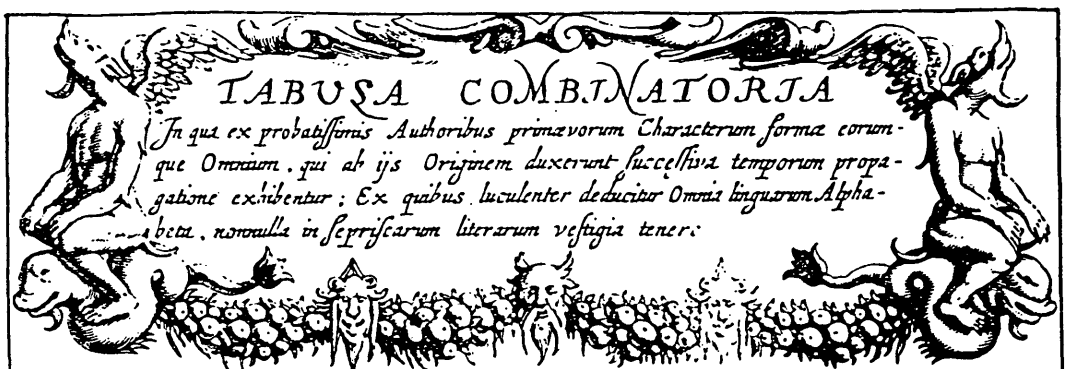 TABUSA COMBINATORIA
In qua ex probatiſſimis Authoribus primævorum Characterum formæ eorum-
que Omnium. qui ab ijs Originem duxerunt ſucceſſiva temporum propa-
gatione exhibentur; Ex quibus luculenter deducitur Omnia linguarum Alpha-
beta. nonnulla in ſe priſcarum literarum veſtigia tenere